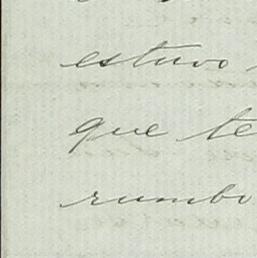 estuvo
que te
rumbo